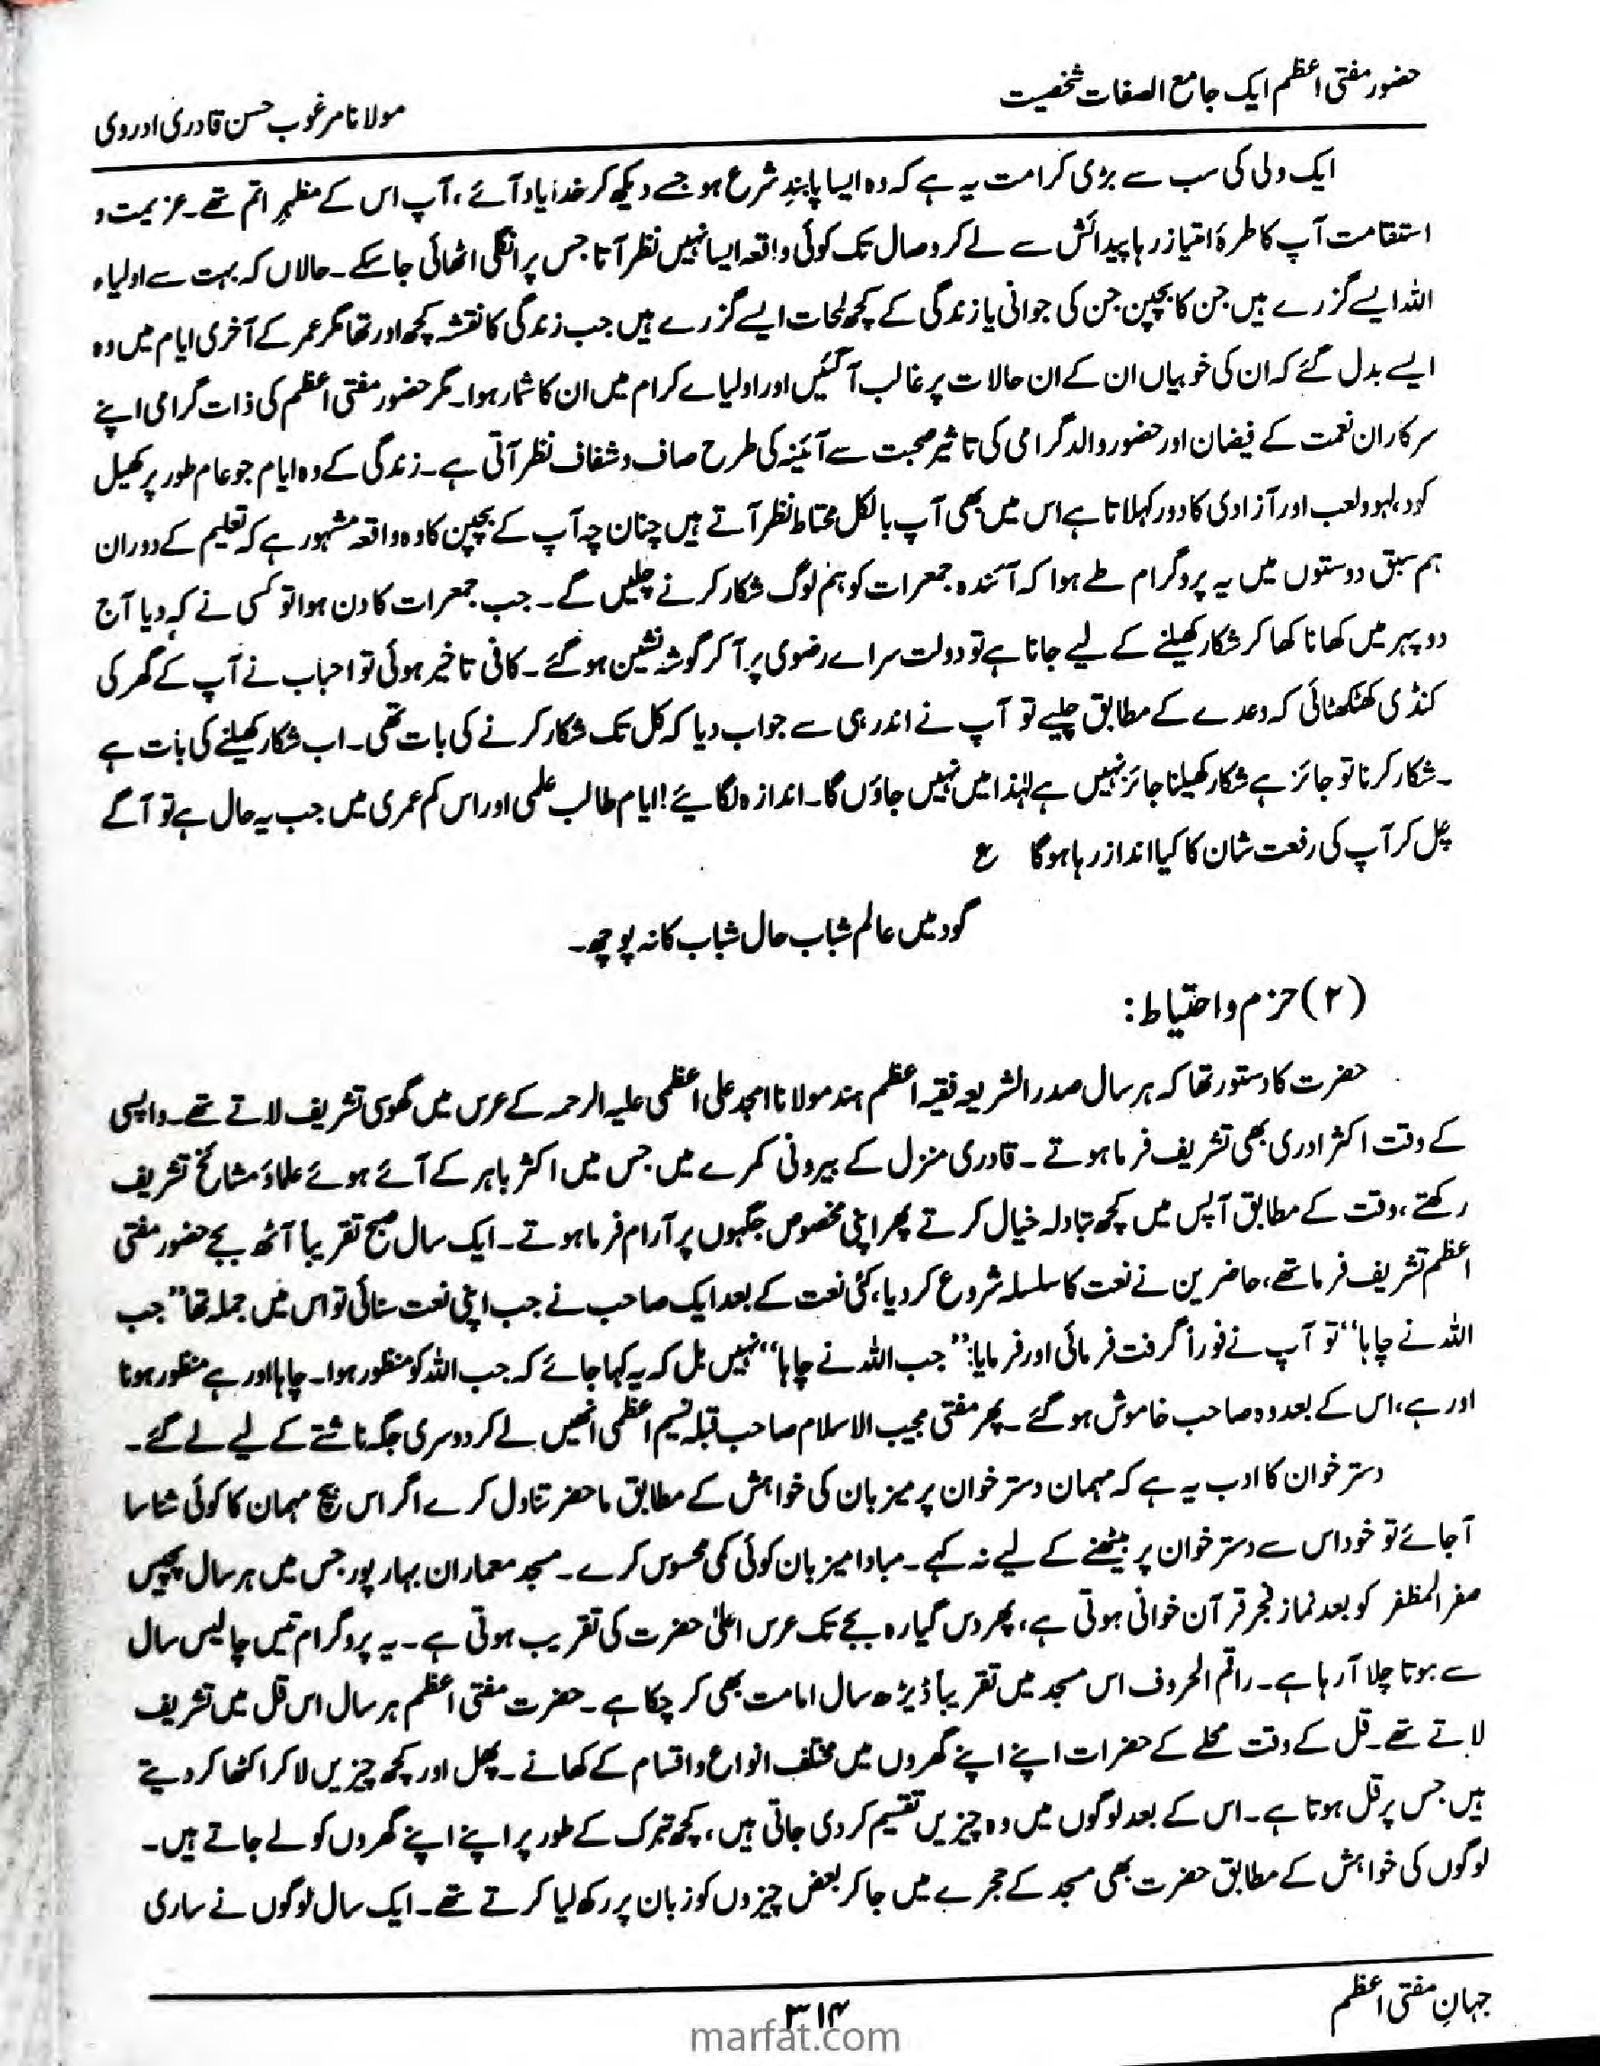 حضور مفتی اعظم ایک جامع الصفات شخصیت
مولانا مرغوب حسن قادری ادروی
ایک ولی کی سب سے بڑی کرامت یہ ہے کہ وہ ایسا پابندِ شرع ہو جسے دیکھ کر خدا یاد آئے، آپ اس کے مظہرِ اتم تھے۔ عزیمت و
استقامت آپ کا طرۂ امتیاز رہا پیدائش سے لے کر وصال تک کوئی واقعہ ایسا نہیں نظر آتا جس پر انگلی اٹھائی جا سکے۔ حالاں کہ بہت سے اولیاء
اللہ ایسے گزرے ہیں جن کا بچپن جن کی جوانی یا زندگی کے کچھ لمحات ایسے گزرے ہیں جب زندگی کا نقشہ کچھ اور تھا مگر عمر کے آخری ایام میں وہ
ایسے بدل گئے کہ ان کی خوبیاں ان کے ان حالات پر غالب آگئیں اور اولیاے کرام میں ان کا شمار ہوا۔ مگر حضور مفتی اعظم کی ذات گرامی اپنے
سرکاران نعمت کے فیضان اور حضور والد گرامی کی تاثیر صحبت سے آئینہ کی طرح صاف و شفاف نظر آتی ہے۔ زندگی کے وہ ایام جو عام طور پر کھیل
کود، لہو ولعب اور آزادی کا دور کہلاتا ہے اس میں بھی آپ بالکل محتاط نظر آتے ہیں چنان چہ آپ کے بچپن کا وہ واقعہ مشہور ہے کہ تعلیم کے دوران
ہم سبق دوستوں میں یہ پروگرام طے ہوا کہ آئندہ جمعرات کو ہم لوگ شکار کرنے چلیں گے۔ جب جمعرات کا دن ہوا تو کسی نے کہہ دیا آج
دوپہر میں کھانا کھا کر شکار کھیلنے کے لیے جانا ہے تو دولت سراے رضوی پر آکر گوشہ نشین ہو گئے۔ کافی تاخیر ہوئی تو احباب نے آپ کے گھر کی
کنڈی کھٹکھٹائی کہ وعدے کے مطابق چلیے تو آپ نے اندر ہی سے جواب دیا کہ کل تک شکار کرنے کی بات تھی۔ اب شکار کھیلنے کی بات ہے
۔ شکار کرنا تو جائز ہے شکار کھیلنا جائز نہیں ہے لہٰذا میں نہیں جاؤں گا۔ اندازہ لگایئے! ایام طالب علمی اور اس کم عمری میں جب یہ حال ہے تو آگے
چل کر آپ کی رفعت شان کا کیا انداز رہا ہوگا ع
گود میں عالم شباب حال شباب کا نہ پوچھ۔
(۲) حزم و احتیاط:
حضرت کا دستور تھا کہ ہر سال صدر الشریعہ فقیہ اعظم ہند مولانا امجد علی اعظمی علیہ الرحمہ کے عرس میں گھوسی تشریف لاتے تھے۔ واپسی
کے وقت اکثر ادری بھی تشریف فرما ہوتے۔ قادری منزل کے بیرونی کمرے میں جس میں اکثر باہر کے آئے ہوئے علماؤ مشائخ تشریف
رکھتے، وقت کے مطابق آپس میں کچھ تبادلہ خیال کرتے پھر اپنی مخصوص جگہوں پر آرام فرما ہوتے۔ ایک سال صبح تقریباً آٹھ بجے حضور مفتی
اعظم تشریف فرما تھے، حاضرین نے نعت کا سلسلہ شروع کر دیا، کئی نعت کے بعد ایک صاحب نے جب اپنی نعت سنائی تو اس میں جملہ تھا ”جب
اللہ نے چاہا“ تو آپ نے فوراً گرفت فرمائی اور فرمایا: ”جب اللہ نے چاہا“ نہیں بل کہ یہ کہا جائے کہ جب اللہ کو منظور ہوا۔ چاہا اور ہے منظور ہونا
اور ہے، اس کے بعد وہ صاحب خاموش ہو گئے۔ پھر مفتی مجیب الاسلام صاحب قبلہ نسیم اعظمی انھیں لے کر دوسری جگہ ناشتے کے لیے لے گئے۔
دستر خوان کا ادب یہ ہے کہ مہمان دستر خوان پر میزبان کی خواہش کے مطابق ماحضر تناول کرے اگر اس بیچ مہمان کا کوئی شناسا
آجائے تو خود اس سے دستر خوان پر بیٹھنے کے لیے نہ کہے۔ مبادا میزبان کوئی کمی محسوس کرے۔ مسجد معماران بہار پور جس میں ہر سال پچیس
صفر المظفر کو بعد نماز فجر قرآن خوانی ہوتی ہے، پھر دس گیارہ بجے تک عرس اعلیٰ حضرت کی تقریب ہوتی ہے۔ یہ پروگرام تیس چالیس سال
سے ہوتا چلا آرہا ہے۔ راقم الحروف اس مسجد میں تقریباً ڈیڑھ سال امامت بھی کر چکا ہے۔ حضرت مفتی اعظم ہر سال اس قل میں تشریف
لاتے تھے۔ قل کے وقت محلے کے حضرات اپنے اپنے گھروں میں مختلف انواع و اقسام کے کھانے۔ پھل اور کچھ چیزیں لا کر اکٹھا کر دیتے
ہیں جس پر قل ہوتا ہے۔ اس کے بعد لوگوں میں وہ چیزیں تقسیم کر دی جاتی ہیں، کچھ تبرک کے طور پر اپنے اپنے گھروں کو لے جاتے ہیں۔
لوگوں کی خواہش کے مطابق حضرت بھی مسجد کے حجرے میں جا کر بعض چیزوں کو زبان پر رکھ لیا کرتے تھے۔ ایک سال لوگوں نے ساری
جہانِ مفتی اعظم
۳۱۴
marfat.com